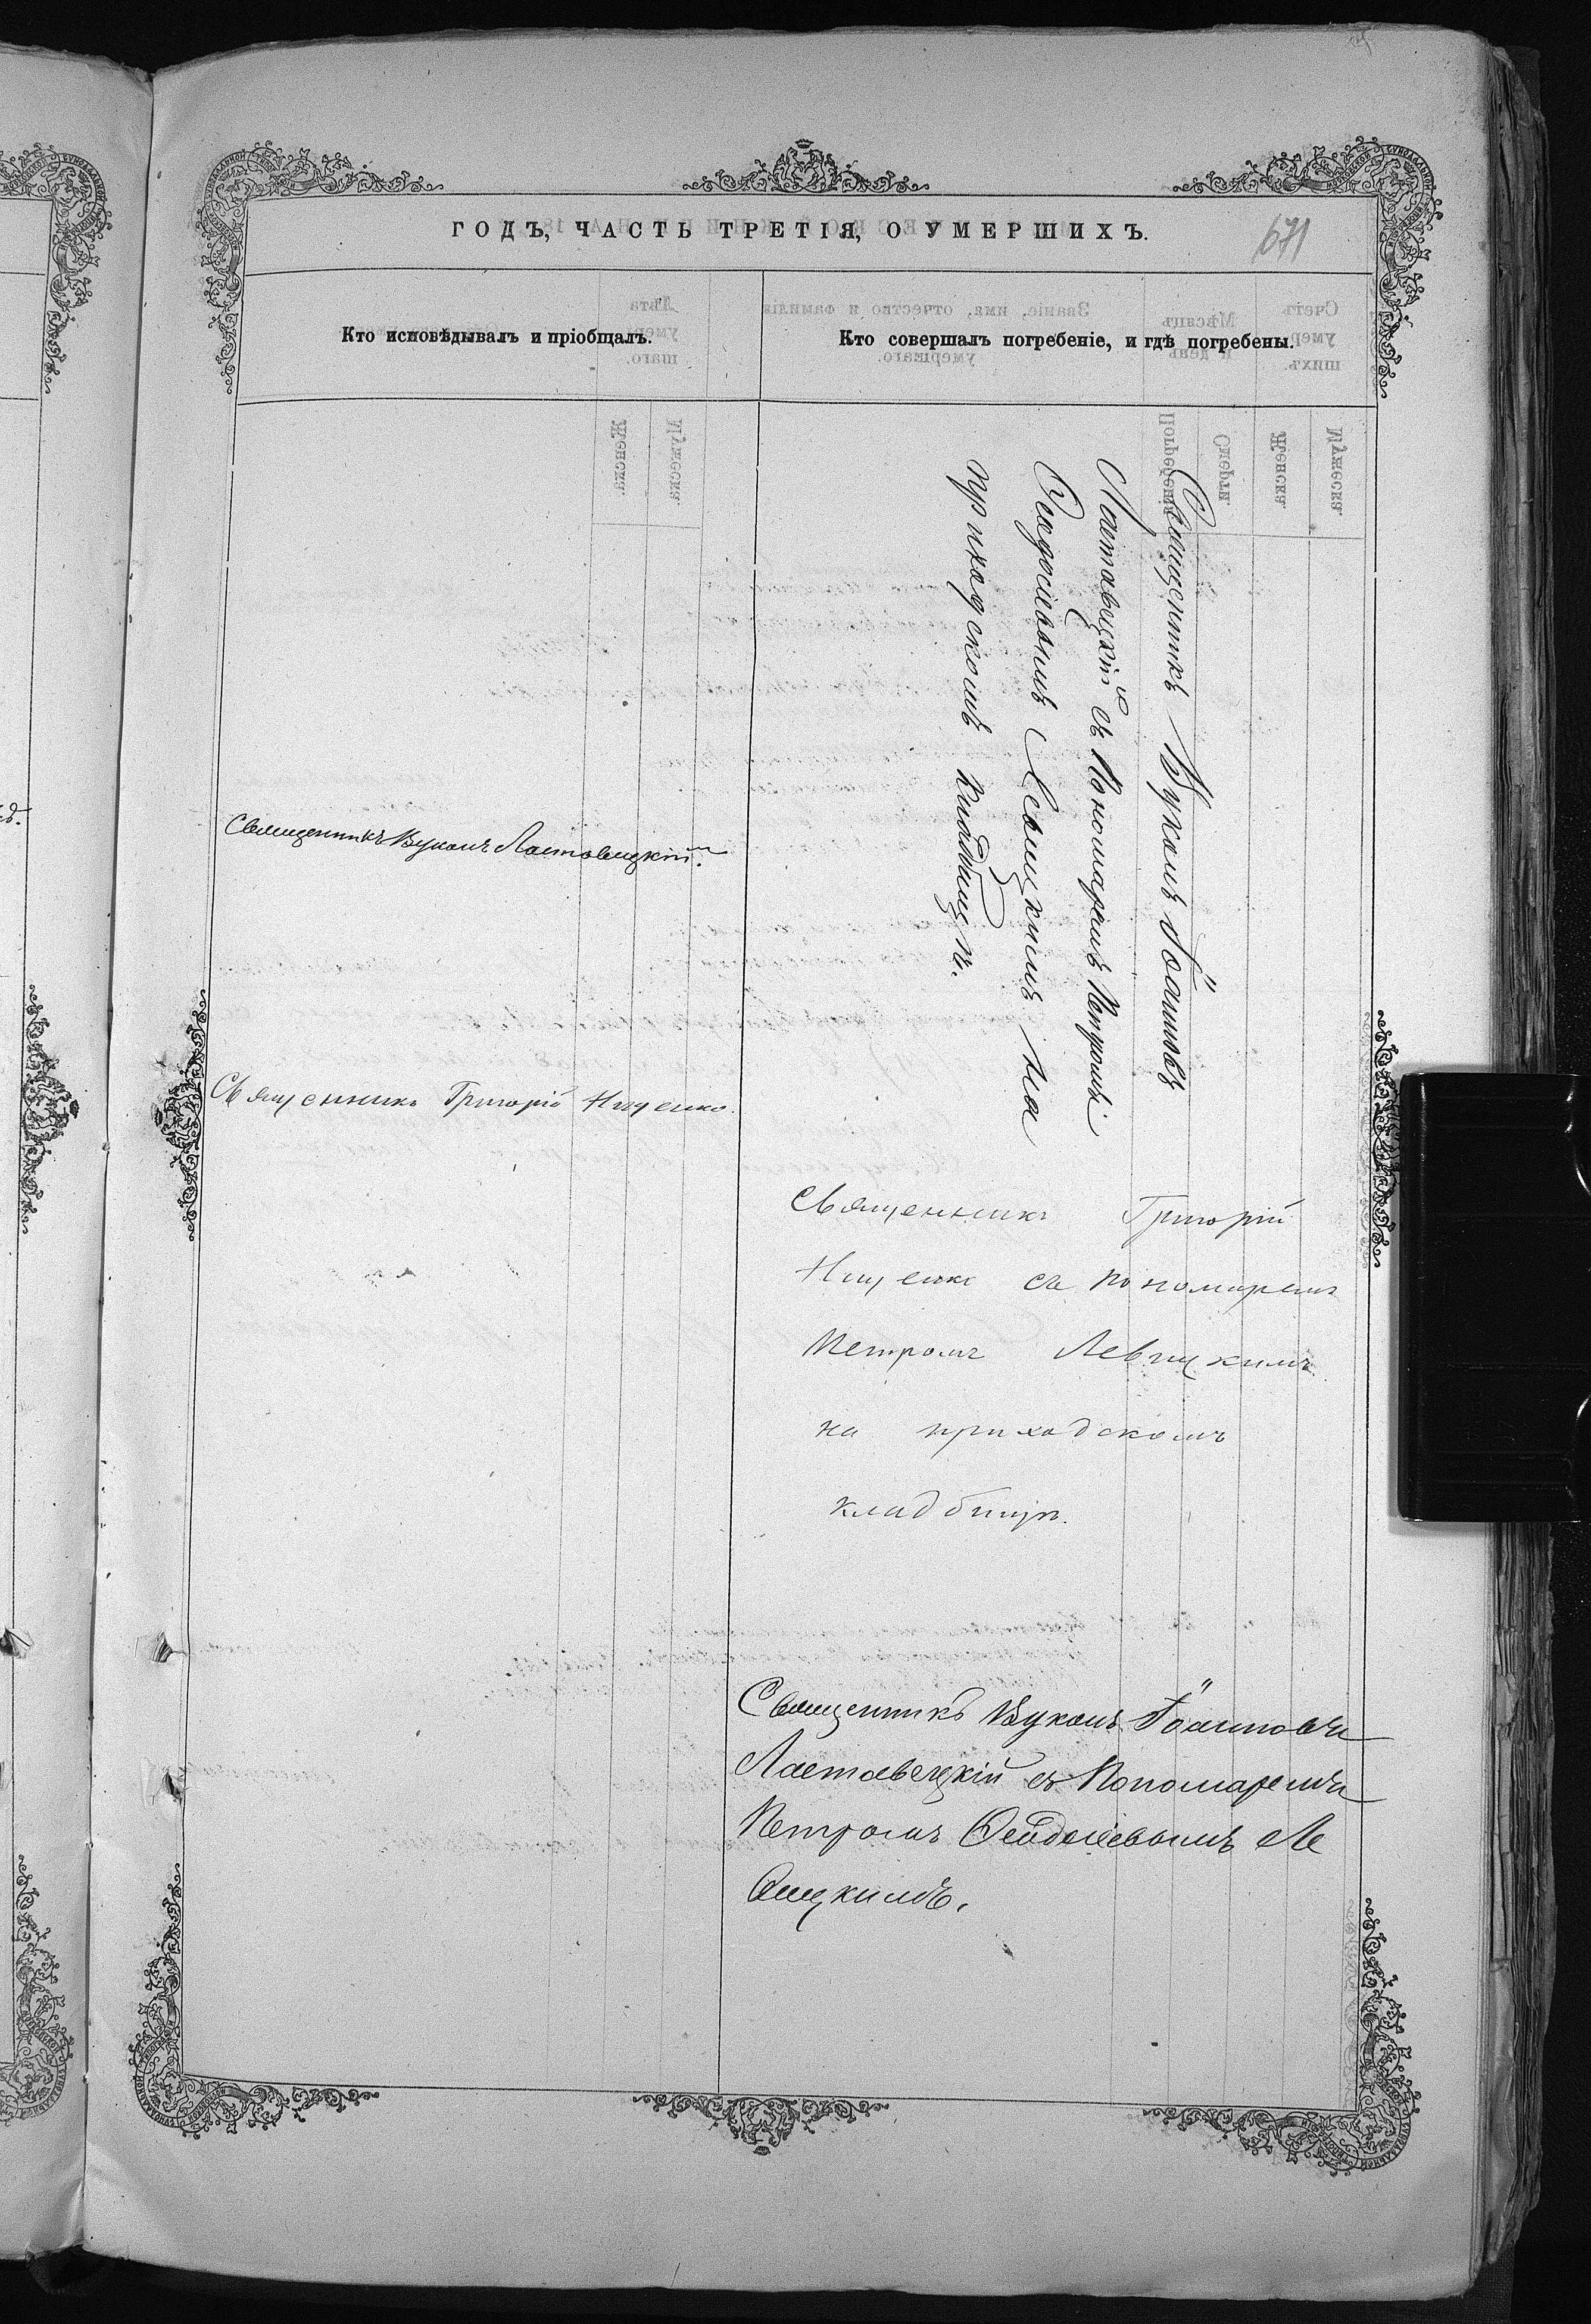 ГОДЪ, ЧАСТЬ ТРЕТІЯ, О УМЕРШИХЪ.
671
Кто исповѣдывалъ и пріобщалъ.
Кто совершалъ погребеніе, и гдѣ погребены.
Священникъ Вуколъ Ластовецкій.
Священникъ Григорій Нищенко.
Священникъ Вуколъ Іоанновъ
Ластовецкій съ Пономаремъ Петромъ
Ѳеодосіевымъ Левицкимъ на
приходскомъ кладбищѣ.
Священникъ Григорій
Нищенко съ пономаремъ
Петромъ Левицкимъ
на приходскомъ
кладбищѣ.
Священникъ Вуколъ Іоанновъ
Ластовецкій съ Пономаремъ
Петромъ Ѳеодосіевымъ Ле
вицкимъ.